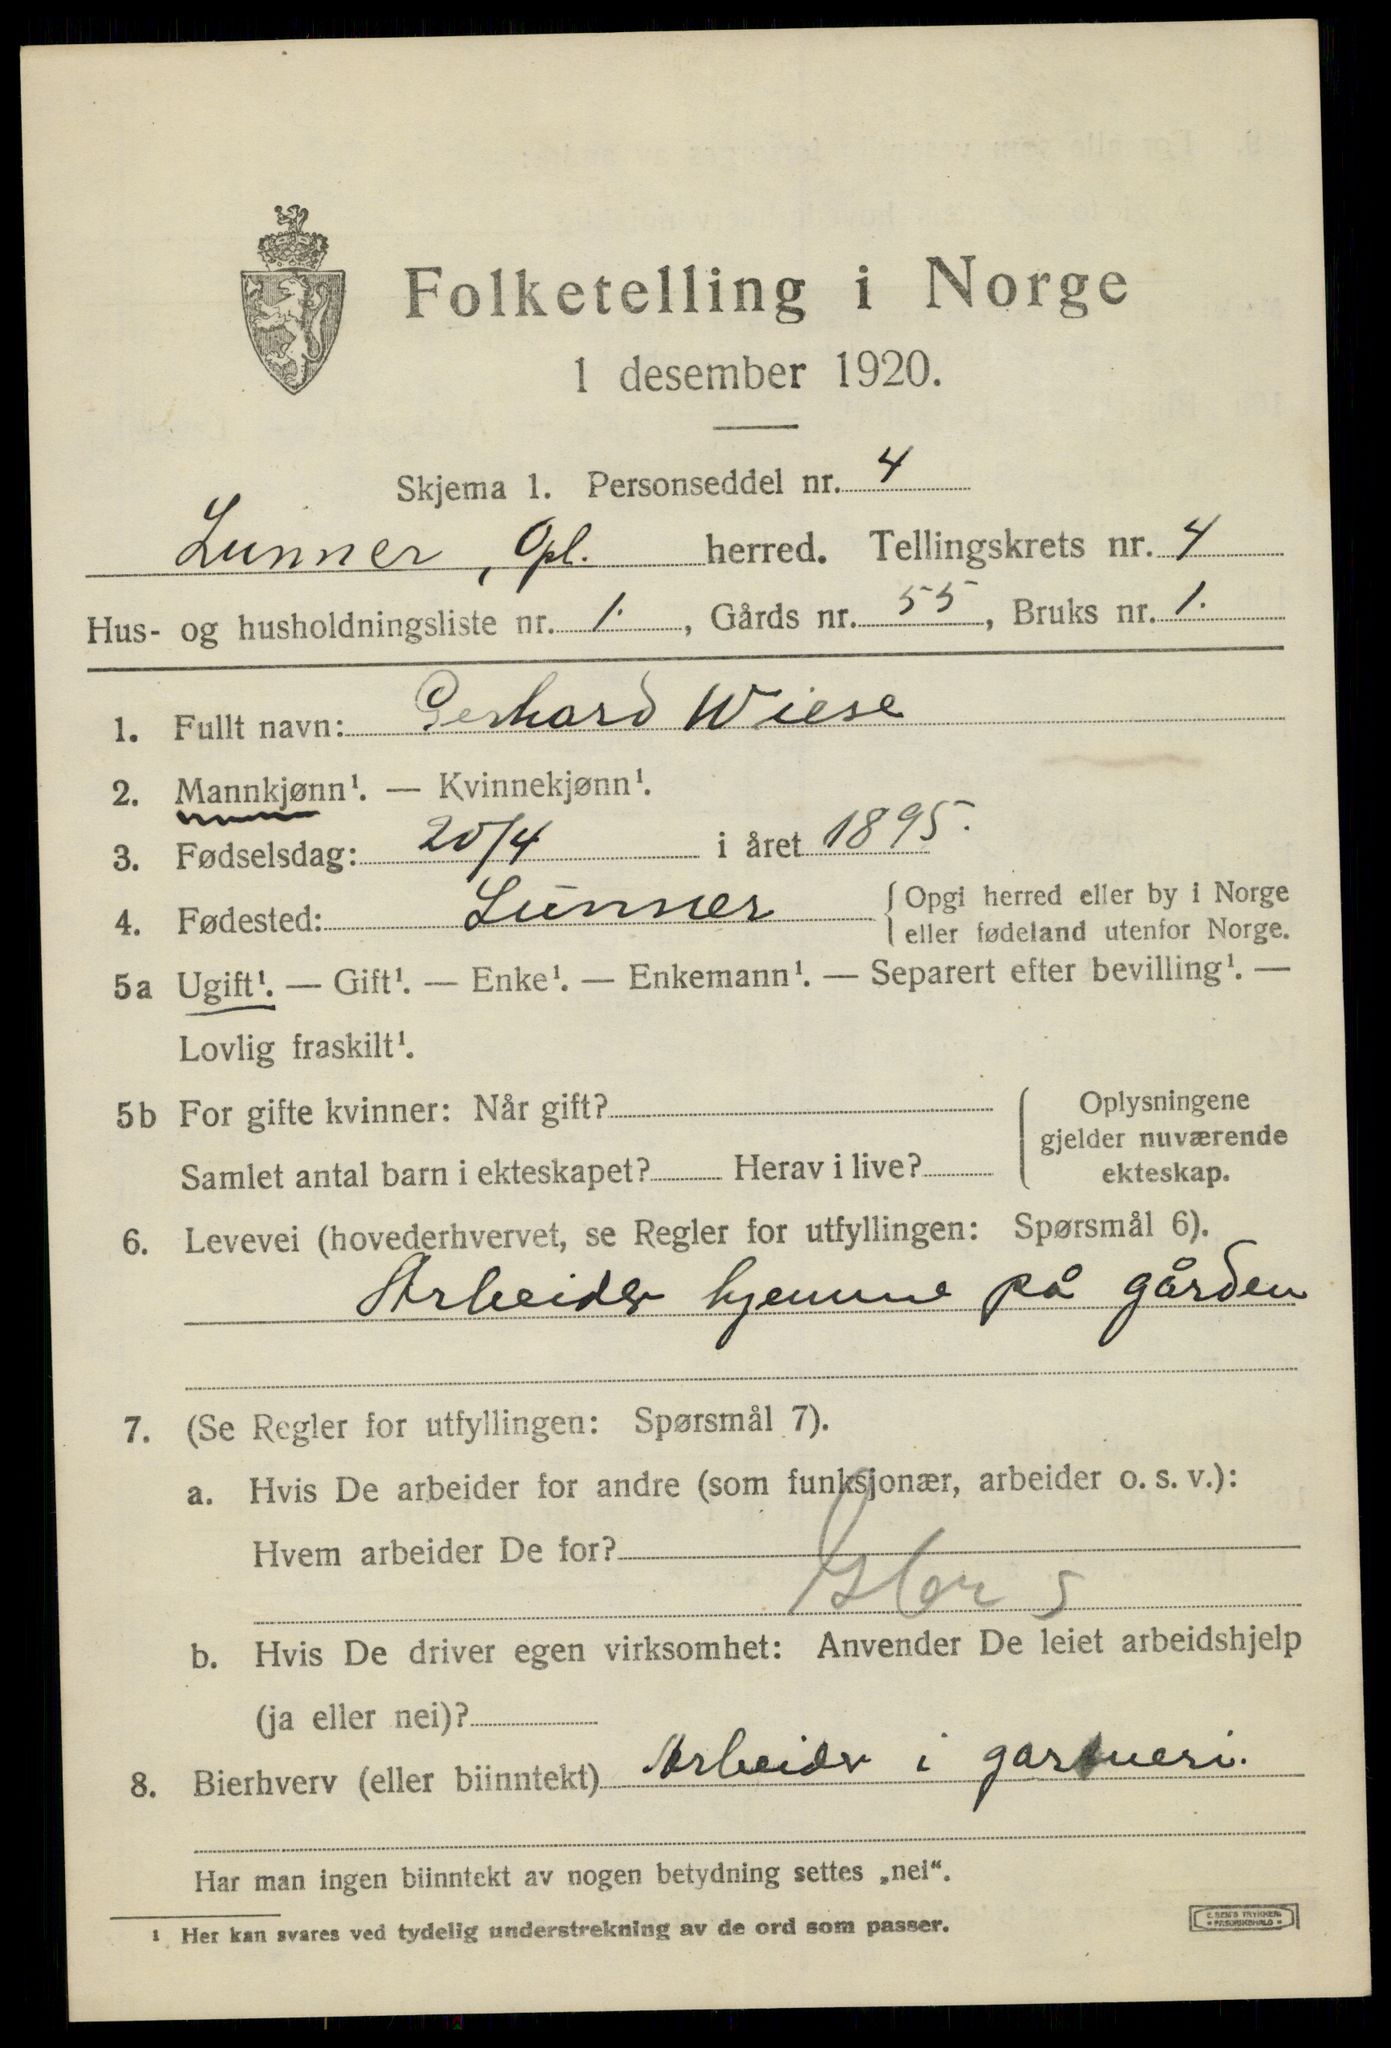 Folketelling i Norge
1 desember 1920.
Skjema 1. Personseddel nr. 4
Lunner, Opl. herred. Tellingskrets nr. 4
Hus- og husholdningsliste nr. 1., Gårds nr. 55, Bruks nr. 1.
1. Fullt navn: Gerhard Wiese
2. Mannkjønn¹. — Kvinnekjønn¹.
3. Fødselsdag: 20/4 i året 1895.
4. Fødested: Lunner { Opgi herred eller by i Norge
eller fødeland utenfor Norge.
5a Ugift¹. — Gift¹. — Enke¹. — Enkemann¹. — Separert efter bevilling¹. —
Lovlig fraskilt¹.
5b For gifte kvinner: Når gift? { Oplysningene
gjelder nuværende
Samlet antal barn i ekteskapet? Herav i live? ekteskap.
6. Levevei (hovederhvervet, se Regler for utfyllingen: Spørsmål 6).
Arbeider hjemme på gården
7. (Se Regler for utfyllingen: Spørsmål 7).
a. Hvis De arbeider for andre (som funksjonær, arbeider o. s. v.):
Hvem arbeider De for?
b. Hvis De driver egen virksomhet: Anvender De leiet arbeidshjelp
(ja eller nei)?
8. Bierhverv (eller biinntekt) Arbeider i gartneri.
Har man ingen biinntekt av nogen betydning settes „nei“.
¹ Her kan svares ved tydelig understrekning av de ord som passer.